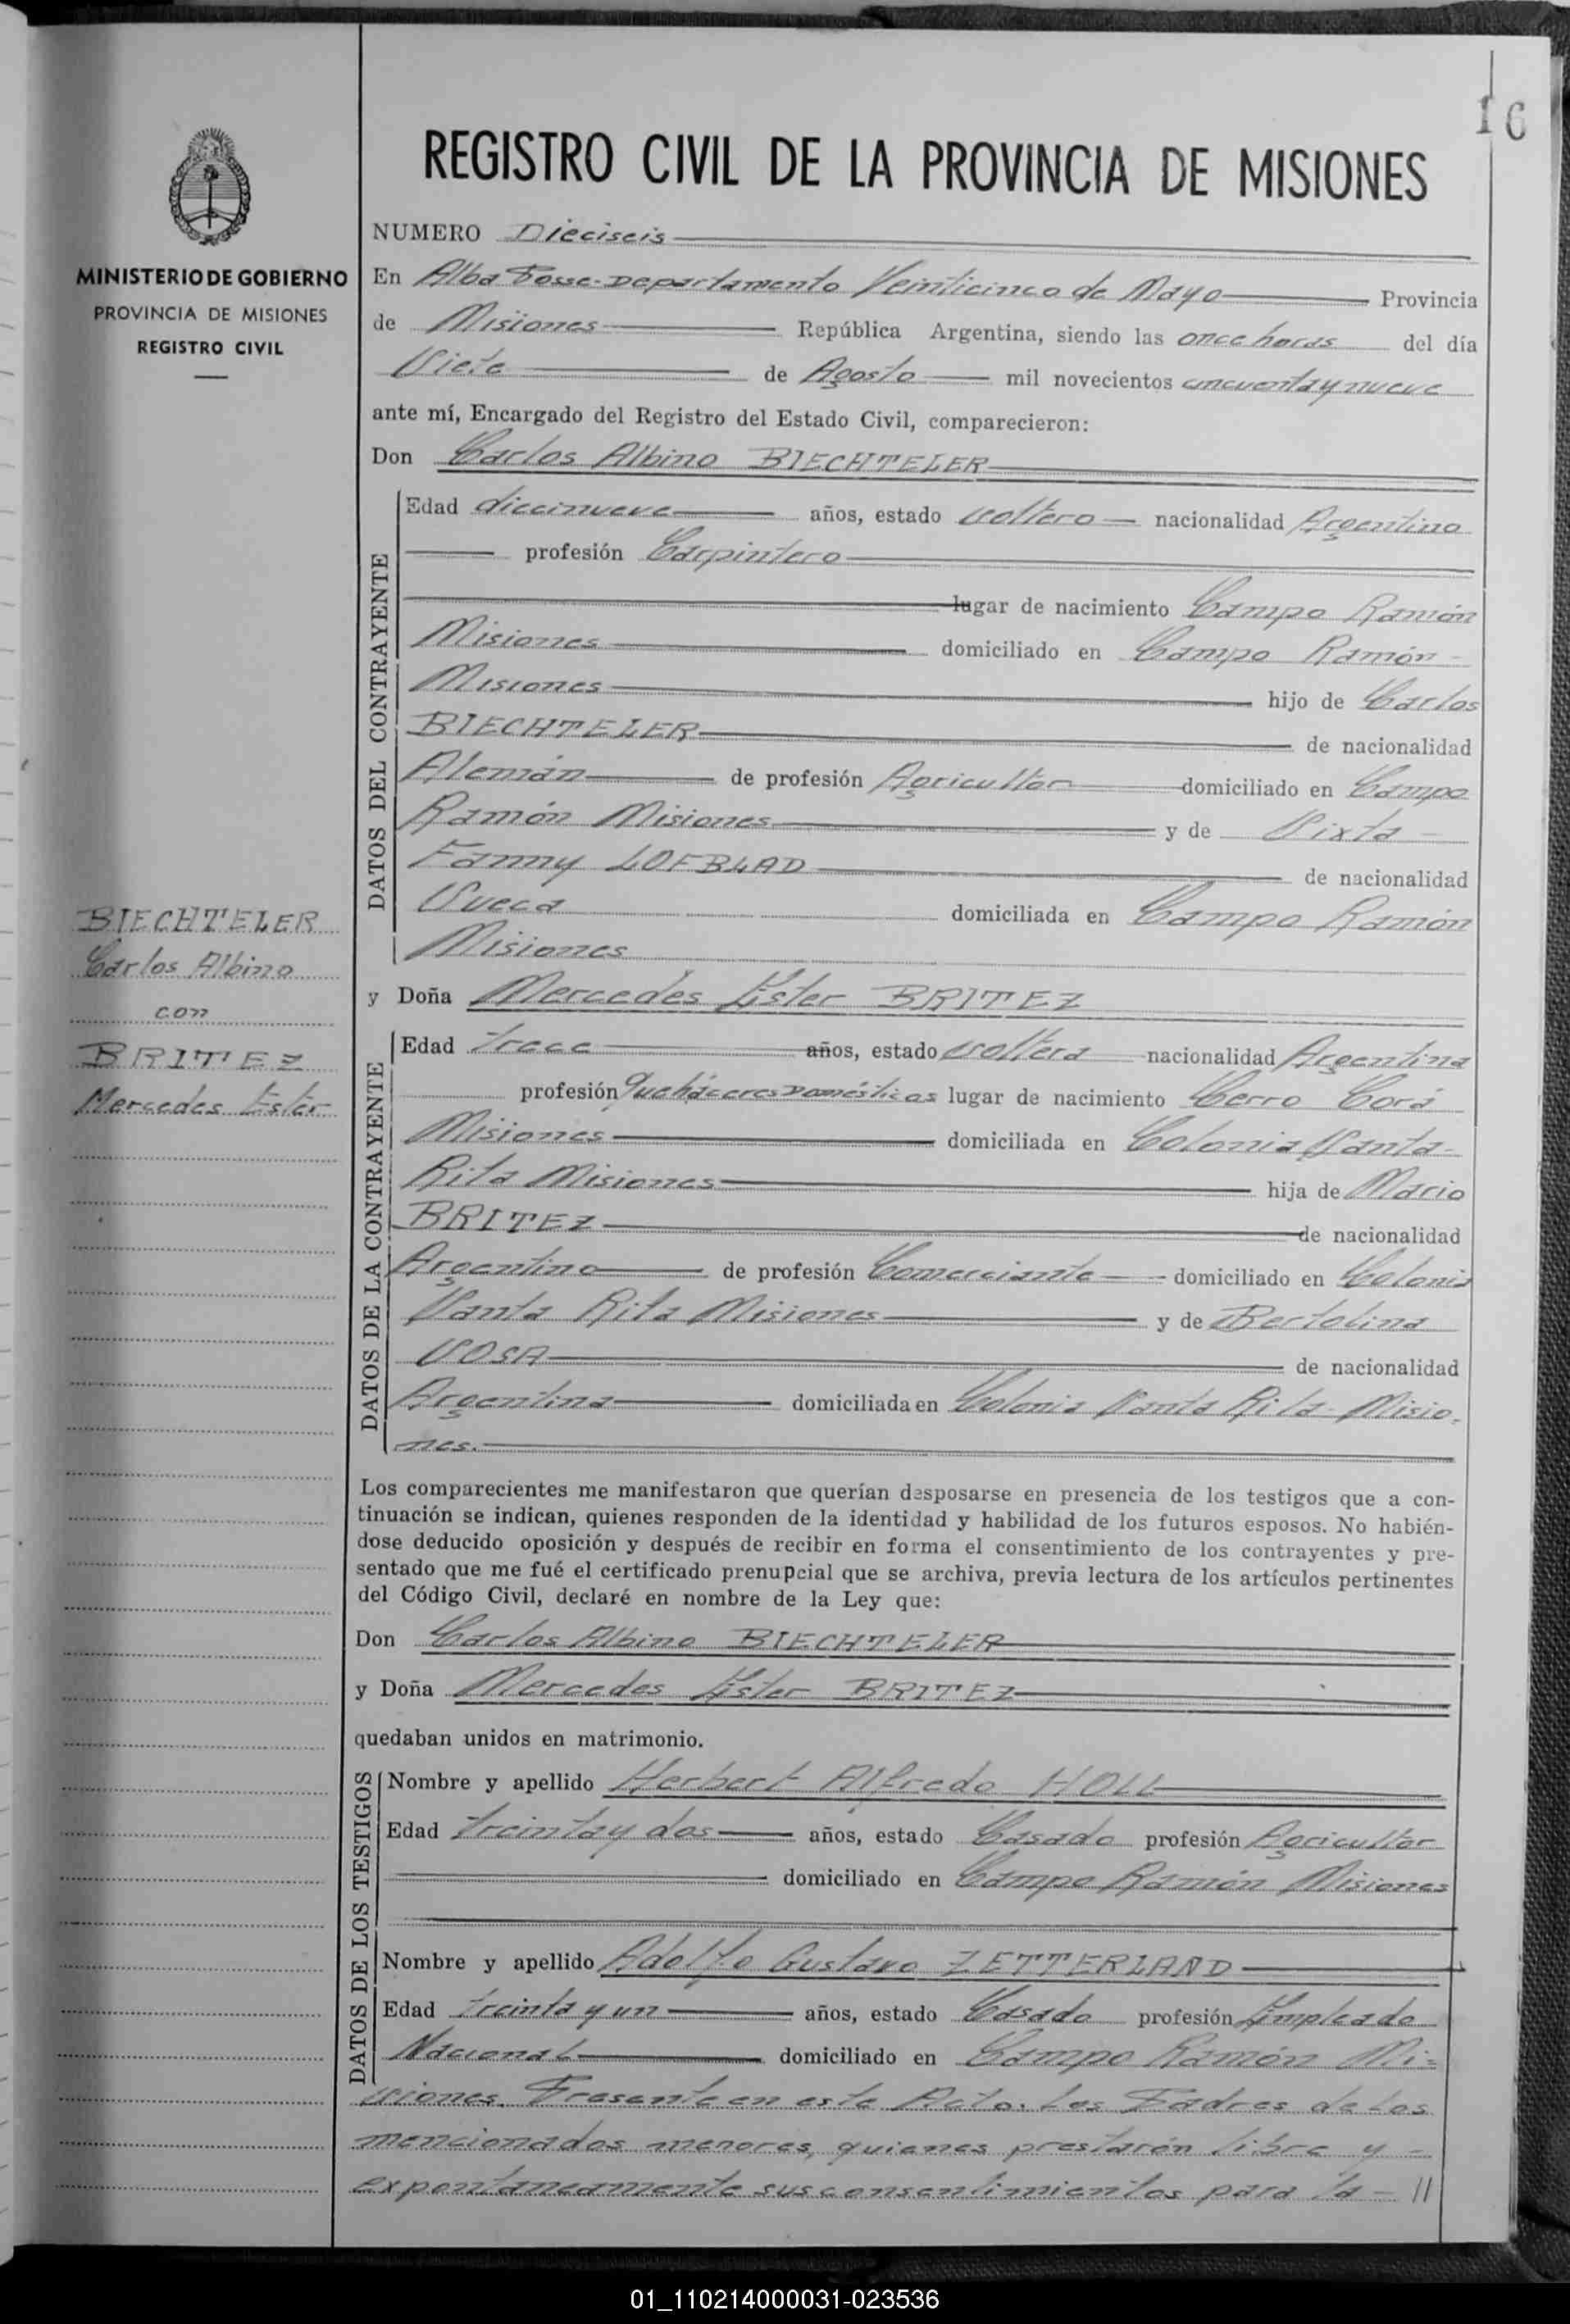 16
REGISTRO CIVIL DE LA PROVINCIA DE MISIONES
MINISTERIO DE GOBIERNO
PROVINCIA DE MISIONES
REGISTRO CIVIL
NUMERO Dieciseis
En Alba Posse-Departamento Veinticinco de Mayo Provincia
de Misiones República Argentina, siendo las once horas del día
Siete de Agosto mil novecientos cincuenta y nueve
ante mí, Encargado del Registro del Estado Civil, comparecieron:
Don Carlos Albino BIECHTELER
DATOS DEL CONTRAYENTE
Edad diecinueve años, estado soltero nacionalidad Argentino
profesión Carpintero
lugar de nacimiento Campo Ramón
Misiones domiciliado en Campo Ramón
Misiones hijo de Carlos
BIECHTELER de nacionalidad
Alemán de profesión Agricultor domiciliado en Campo
Ramón Misiones y de Sixta
Fanny LOFBLAD de nacionalidad
Sueca domiciliada en Campo Ramón
Misiones
BIECHTELER
Carlos Albino
con
BRITEZ
Mercedes Ester
y Doña Mercedes Ester BRITEZ
DATOS DE LA CONTRAYENTE
Edad trece años, estado soltera nacionalidad Argentina
profesión Quehaceres Domésticas lugar de nacimiento Cerro Corá
Misiones domiciliada en Colonia Santa
Rita Misiones hija de Mario
BRITEZ de nacionalidad
Argentino de profesión Comerciante domiciliado en Colonia
Santa Rita Misiones y de Bertolina
SOSA de nacionalidad
Argentina domiciliada en Colonia Santa Rita-Misio-
nes.
Los comparecientes me manifestaron que querían desposarse en presencia de los testigos que a con-
tinuación se indican, quienes responden de la identidad y habilidad de los futuros esposos. No habién-
dose deducido oposición y después de recibir en forma el consentimiento de los contrayentes y pre-
sentado que me fué el certificado prenupcial que se archiva, previa lectura de los artículos pertinentes
del Código Civil, declaré en nombre de la Ley que:
Don Carlos Albino BIECHTELER
y Doña Mercedes Ester BRITEZ
quedaban unidos en matrimonio.
DATOS DE LOS TESTIGOS
Nombre y apellido Herbert Alfredo HOLL
Edad treinta y dos años, estado Casado profesión Agricultor
domiciliado en Campo Ramón Misiones
Nombre y apellido Adolfo Gustavo ZETTERLAND
Edad treinta y un años, estado Casado profesión Empleado
Nacional domiciliado en Campo Ramón Mi=
siones. Presente en este Acto. Los Padres de los
mencionados menores, quienes prestarón libre y -
expontaneamente sus consentimientos para la - //
01_110214000031-023536